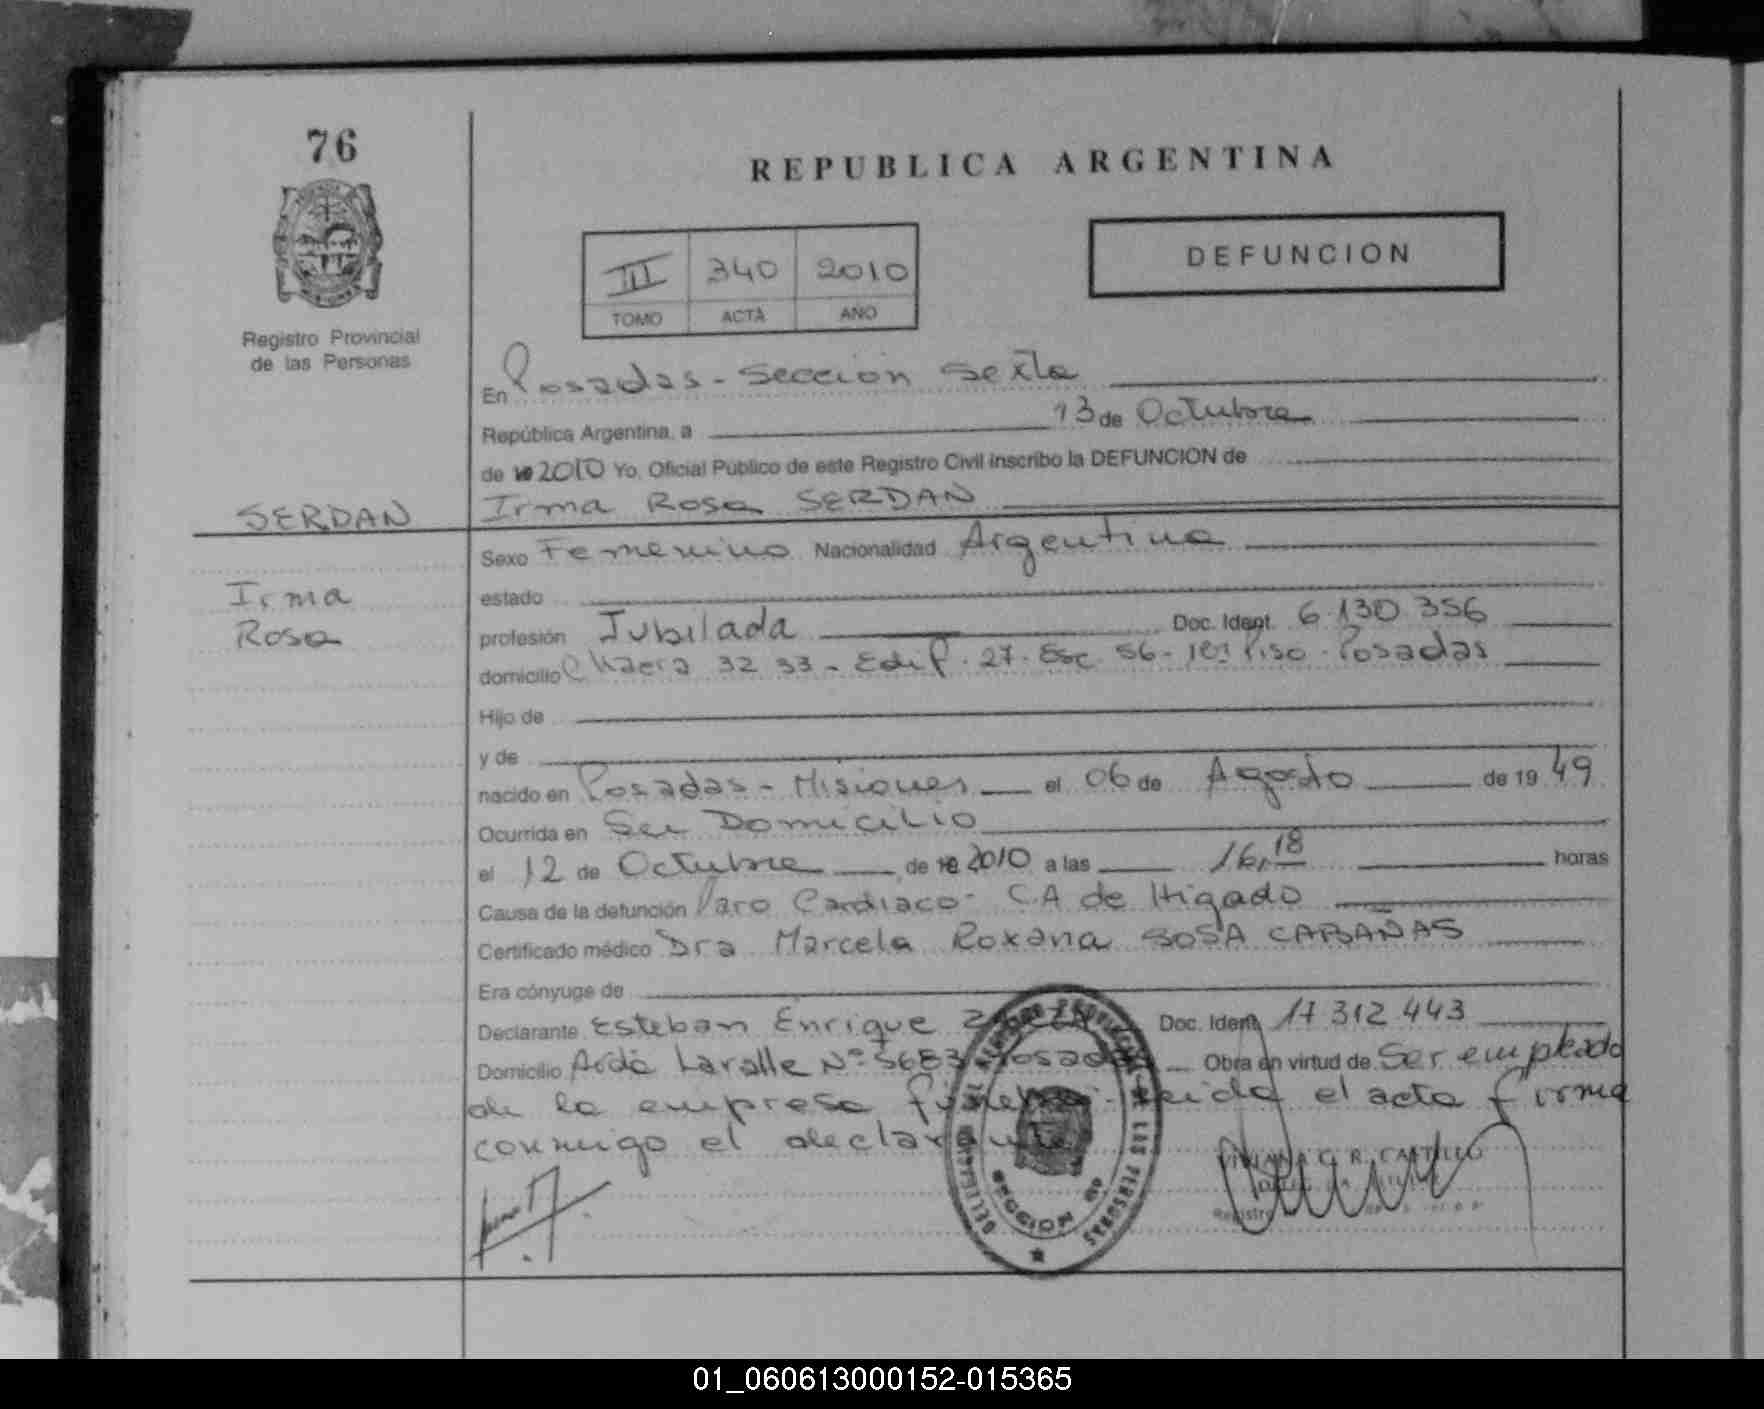 76
REPUBLICA ARGENTINA
Registro Provincial
de las Personas
III 340 2010
TOMO ACTA AÑO
DEFUNCION
En Posadas - Sección Sexta
República Argentina, a 13 de Octubre
de 2010 Yo, Oficial Público de este Registro Civil inscribo la DEFUNCION de
SERDAN
Irma Rosa SERDAN
Irma
Rosa
Sexo Femenino Nacionalidad Argentina
estado
profesión Jubilada Doc. Ident. 6.130.356
domicilio Chacra 32 33 - Edif. 27 - Esc. 56 - 1er Piso - Posadas
Hijo de
y de
nacido en Posadas - Misiones el 06 de Agosto de 1949
Ocurrida en Su Domicilio
el 12 de Octubre de 2010 a las 16,18 horas
Causa de la defunción Paro Cardiaco - C.A de Higado
Certificado médico Dra Marcela Roxana SOSA CABAÑAS
Era cónyuge de
Declarante Esteban Enrique Doc. Ident. 17.312.443
Domicilio Avda Lavalle Nº 5683 Posadas Obra en virtud de Ser empleado
de la empresa fúnebre - Leida el acta firma
conmigo el declarante
DELEGACION DEL REGISTRO PROVINCIAL DE LAS PERSONAS
SECCION 6º
VIVIANA C. R. CASTILLO
Registro
01_060613000152-015365